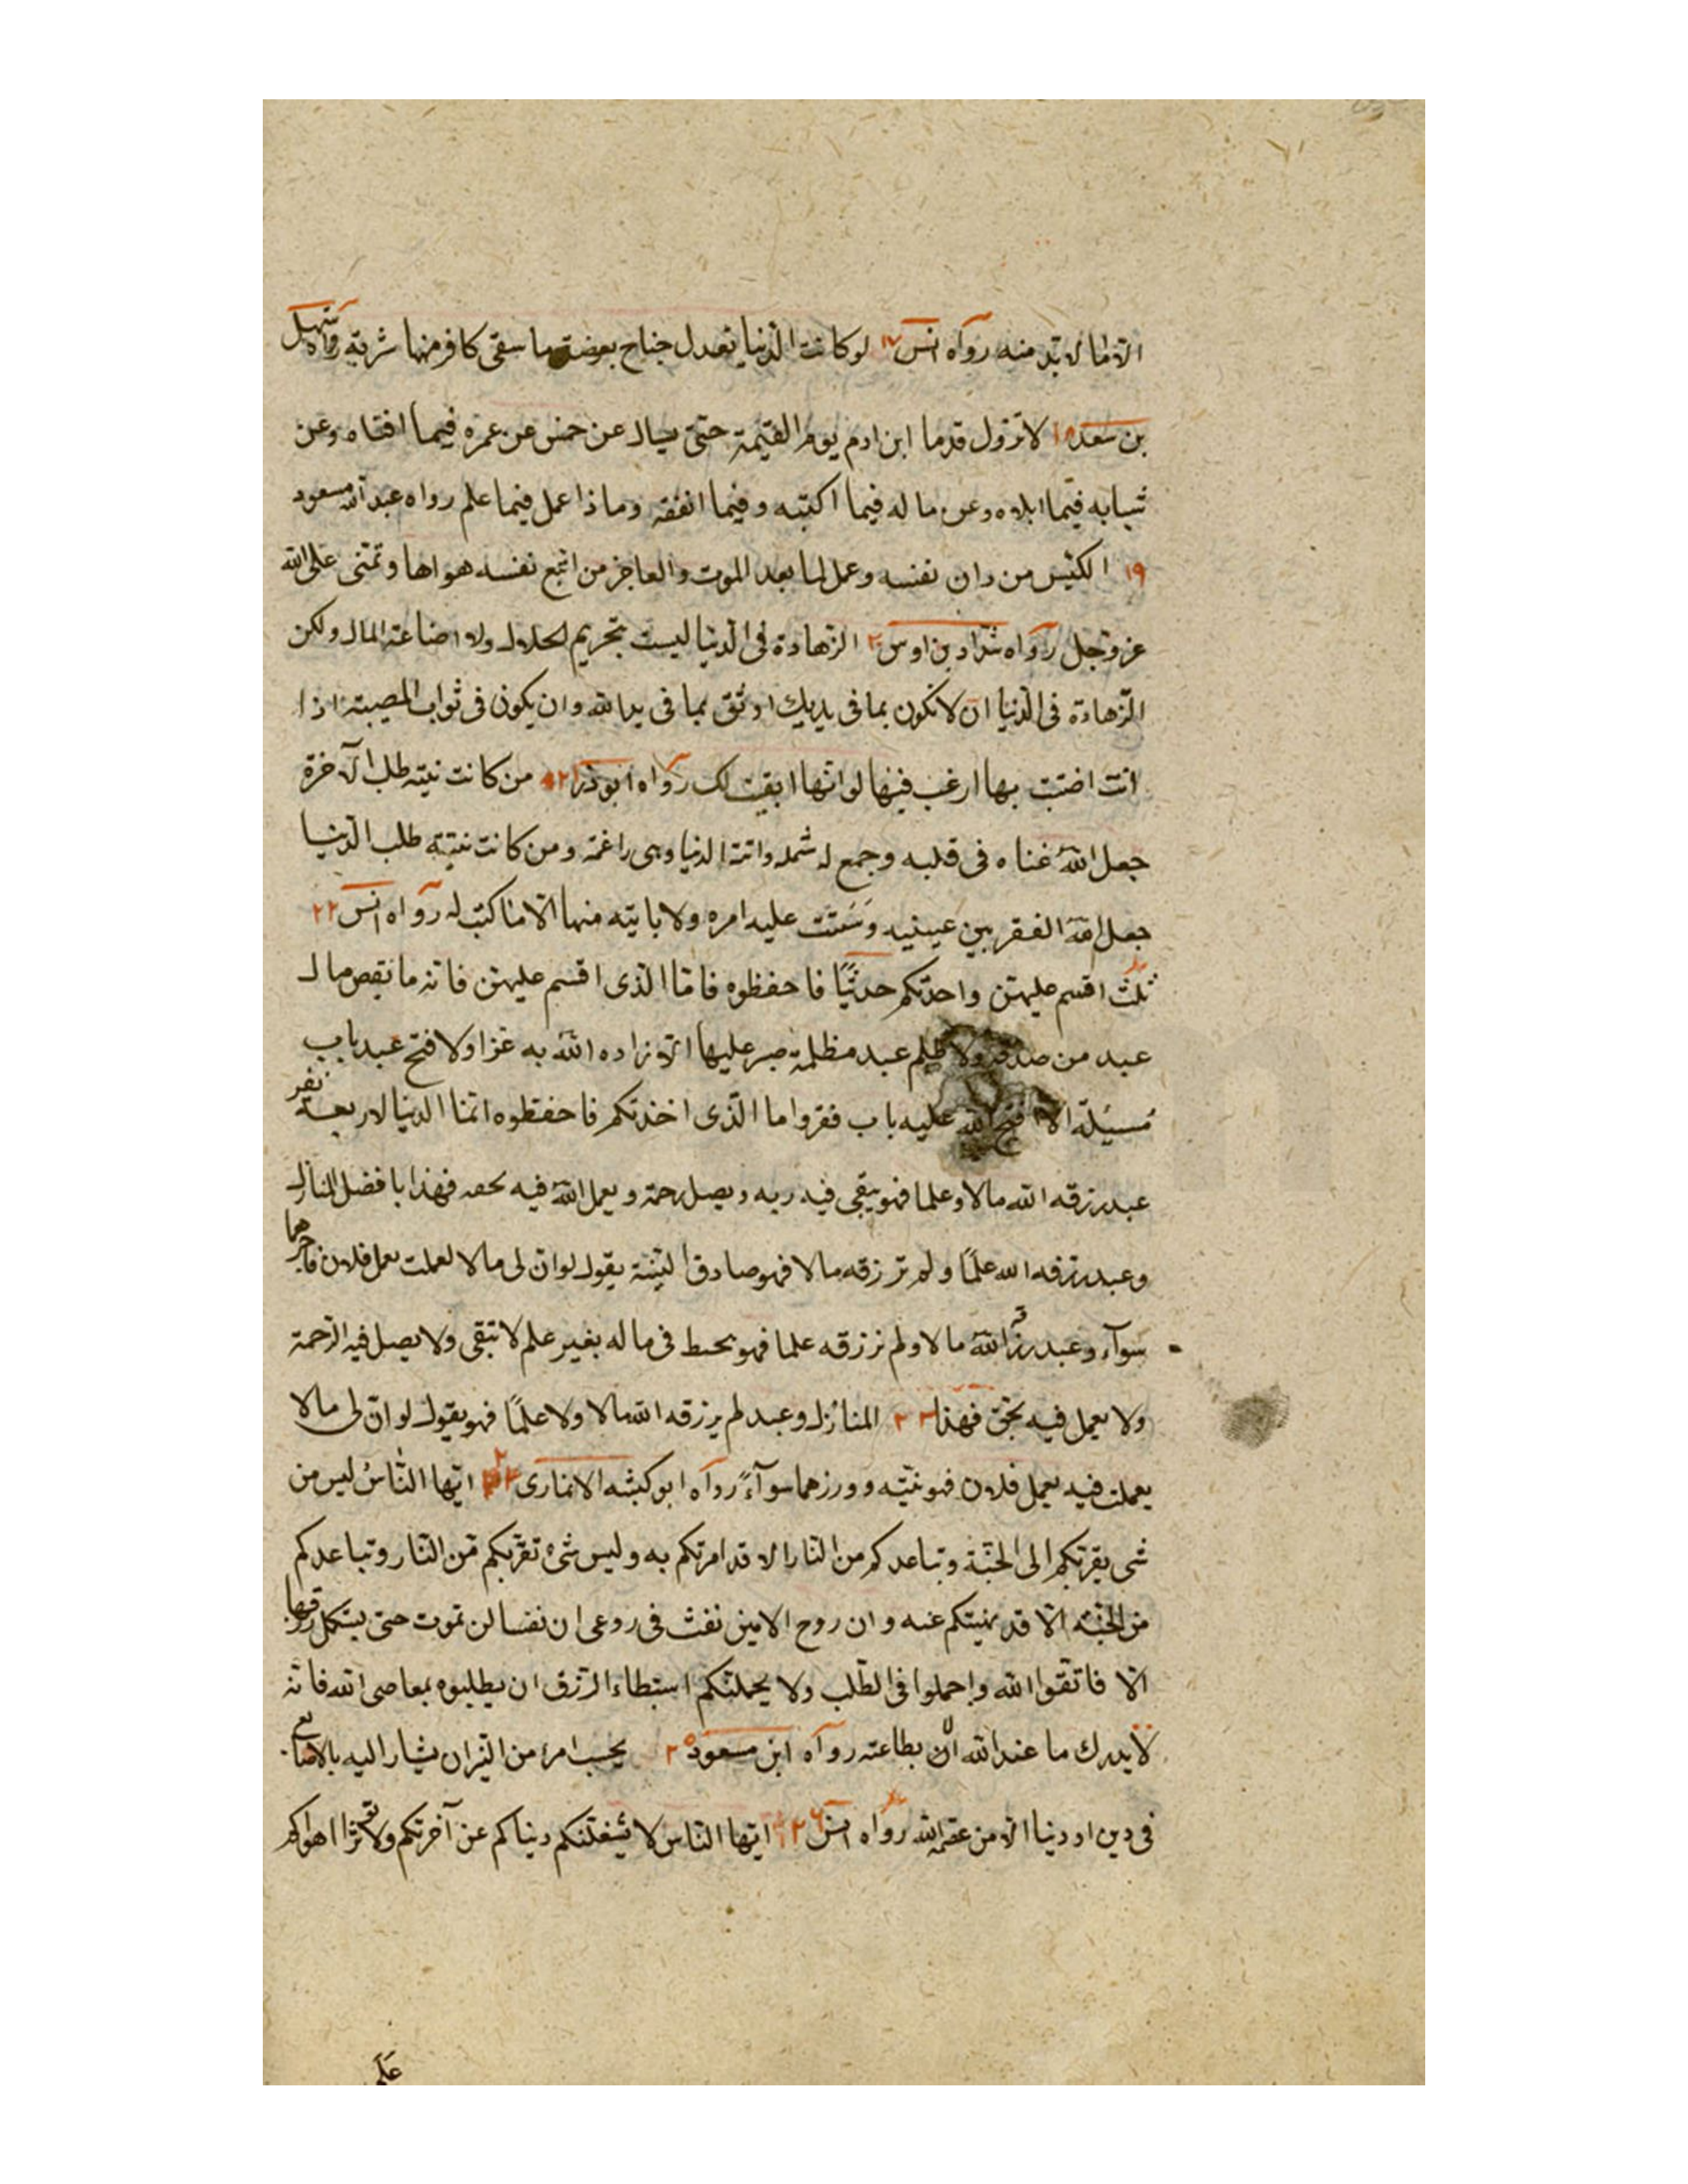 الا ما لا بد منه رواه انس ١٧ لو كانت الدنيا تعدل جناح بعوضة ما سقى كافر منها شربة رواه سهل
بن سعد ١٨ لا تزول قدما ابن ادم يوم القيمة حتى يسال عن خمس عن عمره فيما افناه وعن
شبابه فيما ابلاه وعن ما له فيما اكتبه و فيما انفقه وما ذا عمل فيما علم رواه عبد الله مسعود
١٩ الكيس من دان نفسه وعمل لما بعد الموت والعاجز من اتبع نفسه هواها وتمنى على الله
عز وجل رواه شداد بن اوس ٢ الزهادة في الدنيا ليست بتحريم الحلال ولا اضاعة المال ولكن
الزهادة في الدنيا ان لا تكون بما في يديك اوثق بما في يد الله وان يكون في ثواب المصيبة اذا
انت اضبت بها ارغب فيها لو انها ابقيت لك رواه ابو ذر ٢١ من كانت نيته طلب الآخرة
جعل الله غناه في قلبه وجمع له شمله واتته الدنيا وهى راغمة ومن كانت نيته طلب الدنيا
جعل الله الفقر بين عينيه وشتت عليه امره ولا ياتيه منها الا ما كتب له رواه انس ٢٢
ثلث اقسم عليهن واحدثكم حديثا فاحفظوه فاما الذى اقسم عليهن فانه ما نقص مال
عبد من صدقة ولا ظلم عبد مظلمة صبر عليها الا زاده الله به عزا ولا فتح عبد باب
مسيلة الا فتح الله عليه باب فقر واما الذى اخدتكم فاحفظوه انما الدنيا لاربعة نفر
عبد رزقه الله مالا وعلما فهو يتقى فيه ربه ويصل رحمة ويعمل الله فيه بحقه فهذا بافضل المنازل
وعبد رزقه الله علما ولم ترزقه مالا فهو صادق النية يقول لو ان لى مالا لعملت بعمل فلان فاجرهما
سوآء وعبد رزقه الله مالا ولم نرزقه علما فهو يحبط في ماله بغير علم لا تتقى ولا يصل فيه الرحمة
ولا يعمل فيه بحق فهذا ٢٣ المنازل وعبد لم يرزقه الله مالا ولا علما فهو يقول لو ان لى مالا
يعملت فيه بعمل فلان فهو نيته و ورزهما سوآء رواه ابو كبشه الانمارى ٢٤ ايها الناس ليس من
شى يقربكم الى الجنة وتباعدكم من النار الا قد امرتكم به وليس شئ تقربكم من النار وتباعدكم
من الجنة الا قد نهيتكم عنه و ان روح الامين نفث في روعى ان نفسا لن تموت حتى يستكمل رزقها
الا فاتقوا الله واجملوا في الطلب ولا يحملنكم استبطاء الرزق ان يطلبوه بمعاصى الله فانه
لا يدرك ما عند الله الا بطاعته رواه ابن مسعود ٢٥ بحسب امرء من الشر ان يشار اليه بالاصابع
في دين او دنيا الا من عصمه الله رواه انس ٢٦ ايها الناس لا يشغلنكم دنياكم عن آخرتكم ولا تؤثروا اهواكم
على